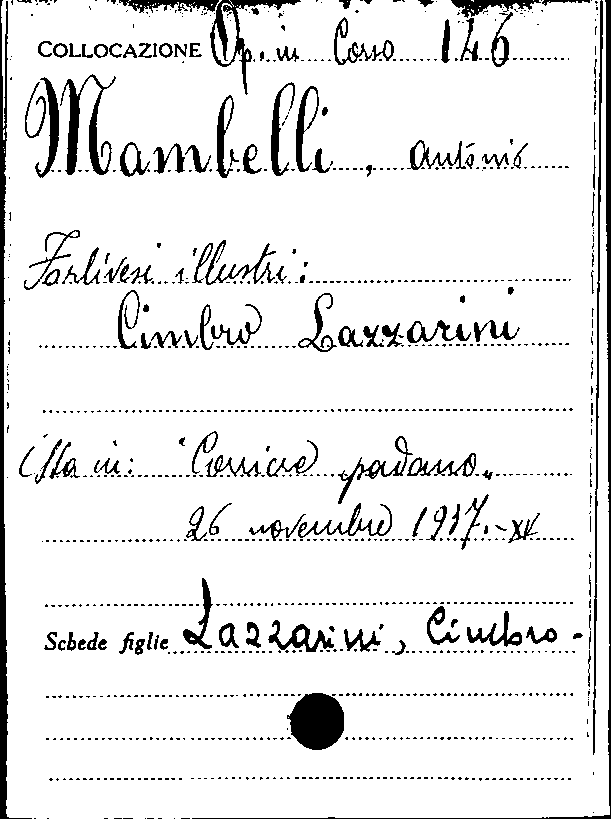 COLLOCAZIONE Op. in Corso 146
Mambelli, Antonio
Forlivesi illustri:
Cimbro Lazzarini
in: "Corriere padano"
26 novembre 1937.-XV
Schede figlie Lazzarini, Cimbro-